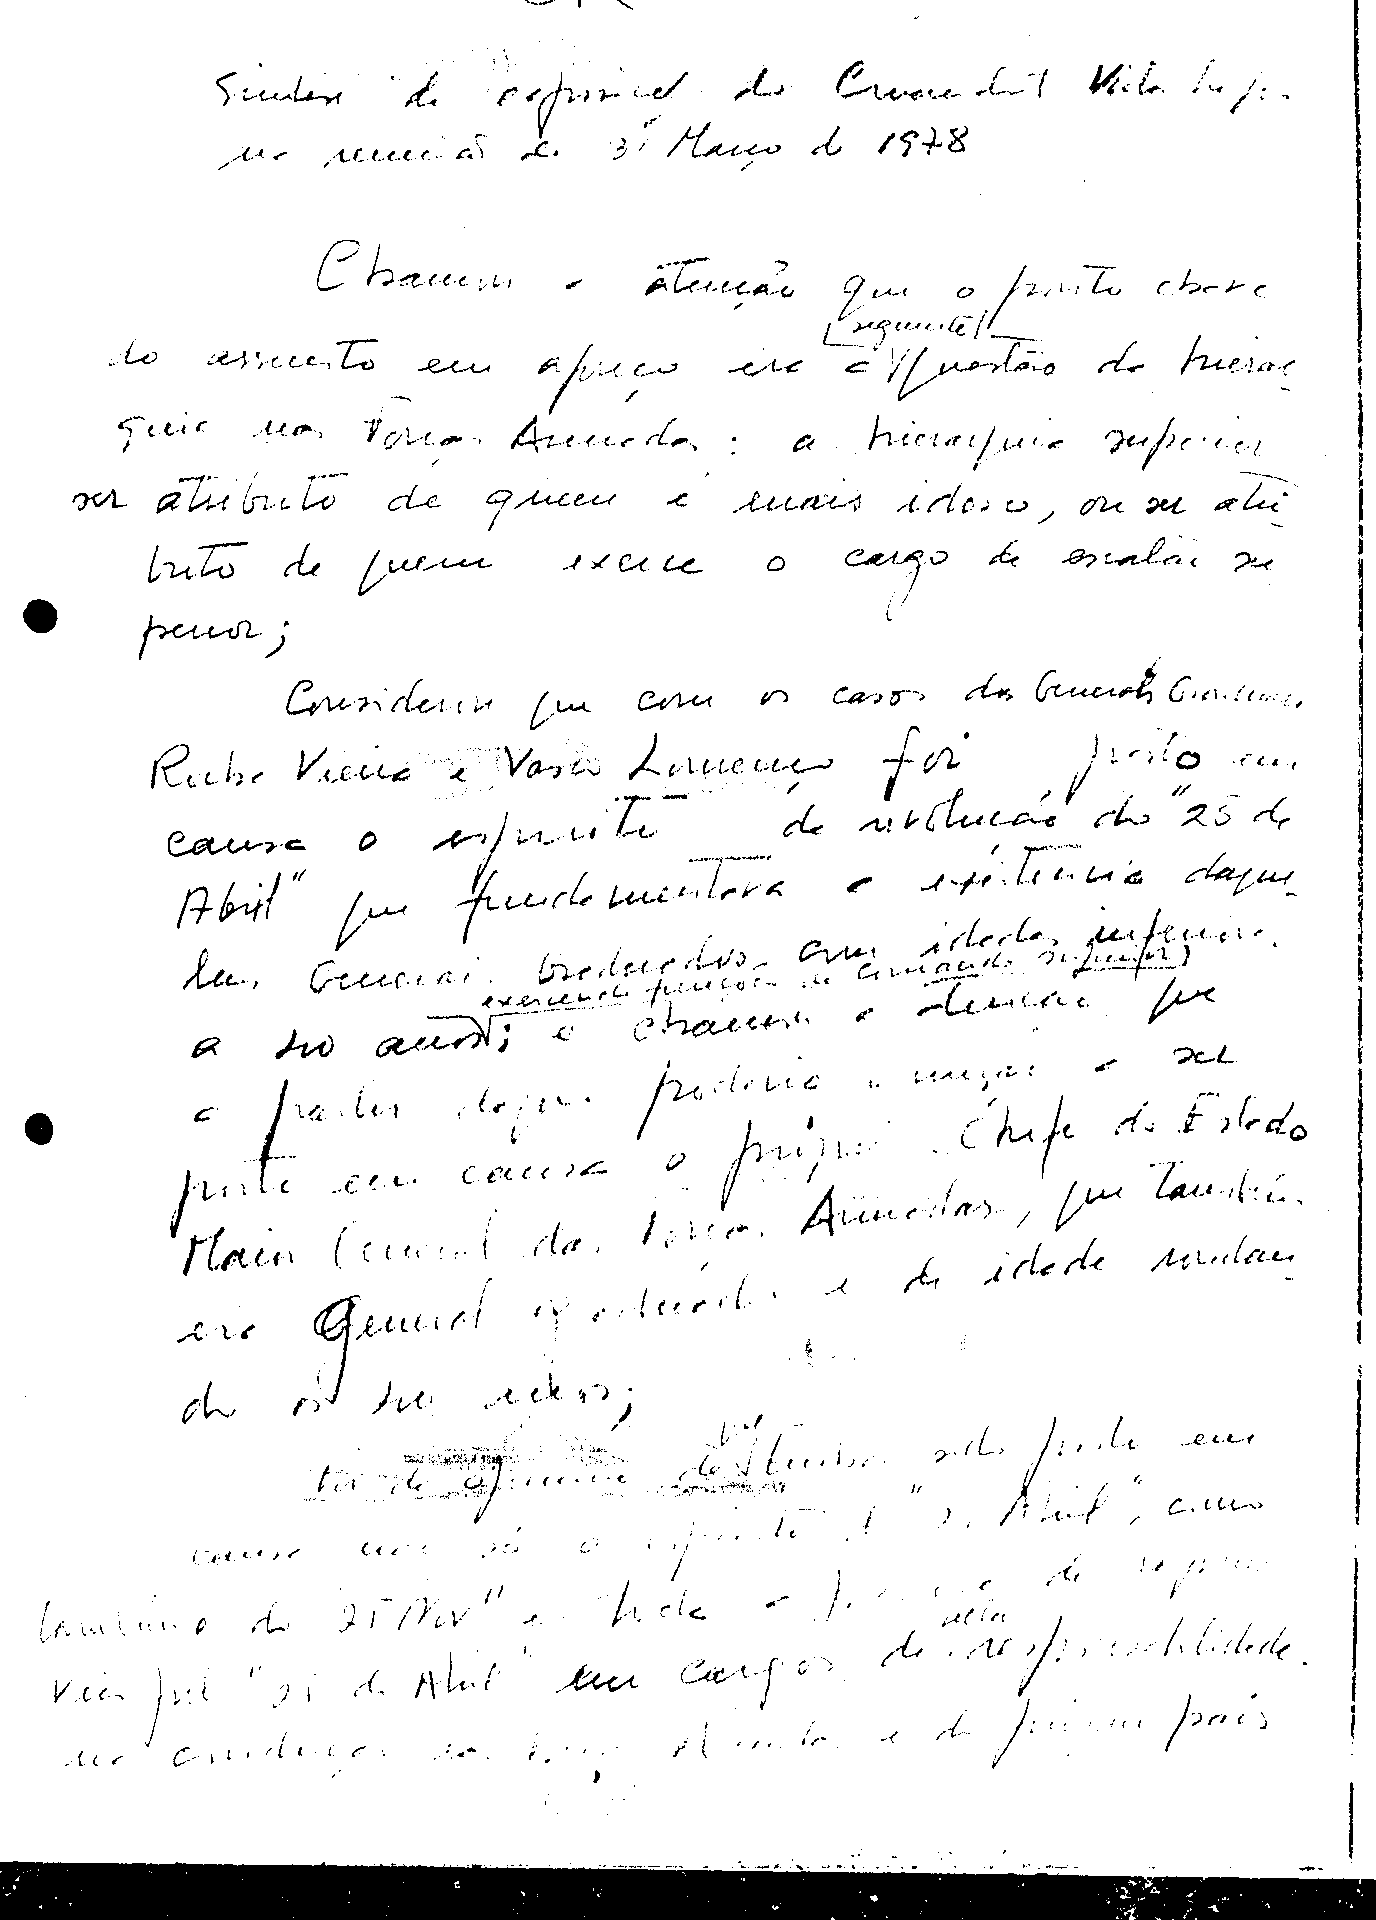 Síntese da exposição do Comandante Vítor
na reunião de 31 Março de 1978
Chamou a atenção que o ponto chave
[seguinte]
do assunto em apreço era a questão da hierar-
quia nas Forças Armadas: a hierarquia superior
ser atributo de quem é mais idoso, ou ser atri-
buto de quem exerce o cargo de escalão su
perior;
Considerou que com os casos dos Generais
Rocha Vieira e Vasco Lourenço foi posto em
causa o espírito da revolução do "25 de
Abril" que fundamentara a existência daque-
les Generais Graduados com idades inferiores
exercendo funções de comando superior,
a 40 anos; e chamou a atenção que
a partir daqui poderia começar a ser
posto em causa o próprio Chefe do Estado
Maior General das Forças Armadas, que também
era General Graduado e de idade rondan-
do os 40 anos;
foi de opinião sido posto em
causa não só o espírito do "25 Abril", como
também o do "25 Nov" e toda a
"25 de Abril" em cargos de alta responsabilidade
na condução das Forças Armadas e do próprio país